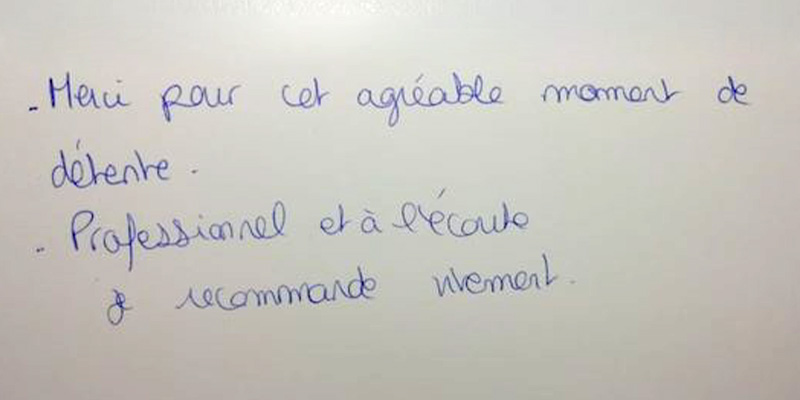 - Merci pour cet agréable moment de
détente.
- Professionnel et à l'écoute
je recommande vivement.